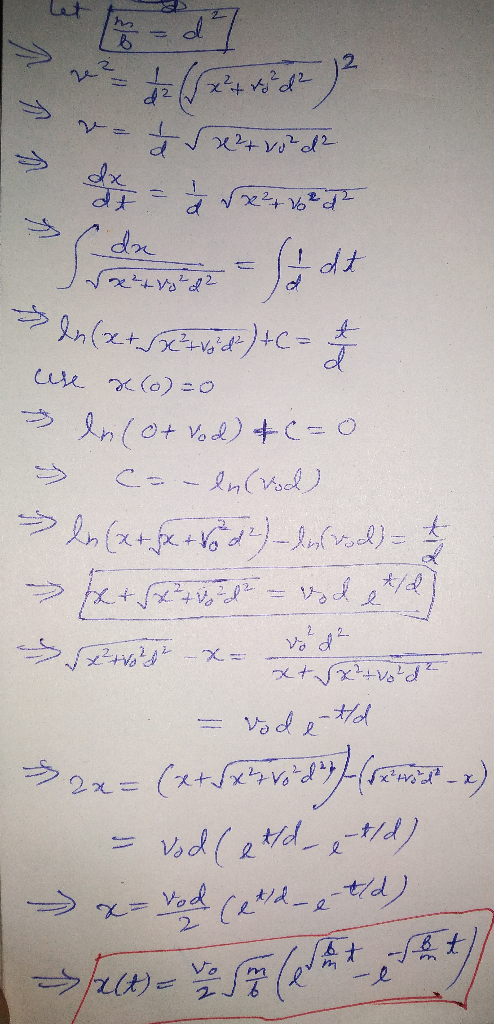 let m/b = d²
⇒ v² = 1/d² (√(x²+v₀²d²))²
⇒ v = 1/d √(x²+v₀²d²)
⇒ dx/dt = 1/d √(x²+v₀²d²)
⇒ ∫ dx/√(x²+v₀²d²) = ∫ 1/d dt
⇒ ln(x+√(x²+v₀²d²))+C = t/d
use x(0)=0
⇒ ln(0+v₀d)+C=0
⇒ C = -ln(v₀d)
⇒ ln(x+√(x+v₀²d²))-ln(v₀d) = t/d
⇒ x+√(x²+v₀²d²) = v₀d e^(t/d)
⇒ √(x²+v₀²d²) - x = v₀²d²/(x+√(x²+v₀²d²))
= v₀d e^(-t/d)
⇒ 2x = (x+√(x²+v₀²d²))-(√(x²+v₀²d²)-x)
= v₀d(e^(t/d)-e^(-t/d))
⇒ x = v₀d/2 (e^(t/d)-e^(-t/d))
⇒ x(t) = v₀/2 √(m/b) (e^(√(b/m) t)-e^(-√(b/m) t))